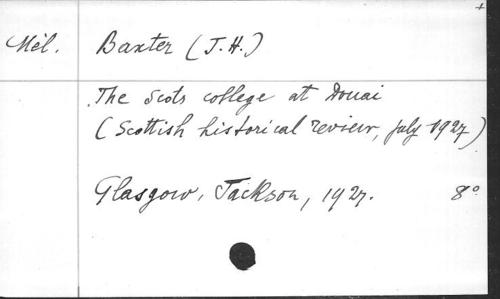 Mél. Baxter (J.H.)
The Scots college at Douai
(Scottish historical review, july 1927)
Glasgow, Jackson, 1927. 8°